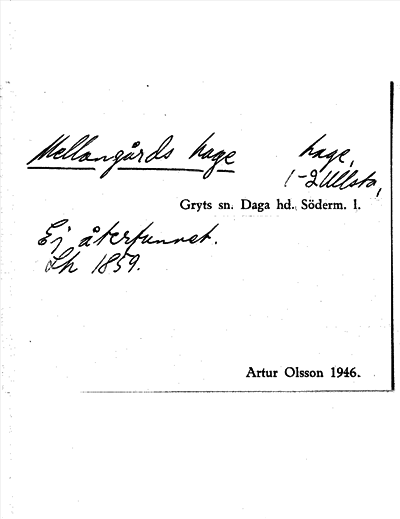 Mellangårds hage hage,
1-2 Ullsta,
Gryts sn. Daga hd. Söderm. l.
Ej återfunnet.
Lh 1859.
Artur Olsson 1946.